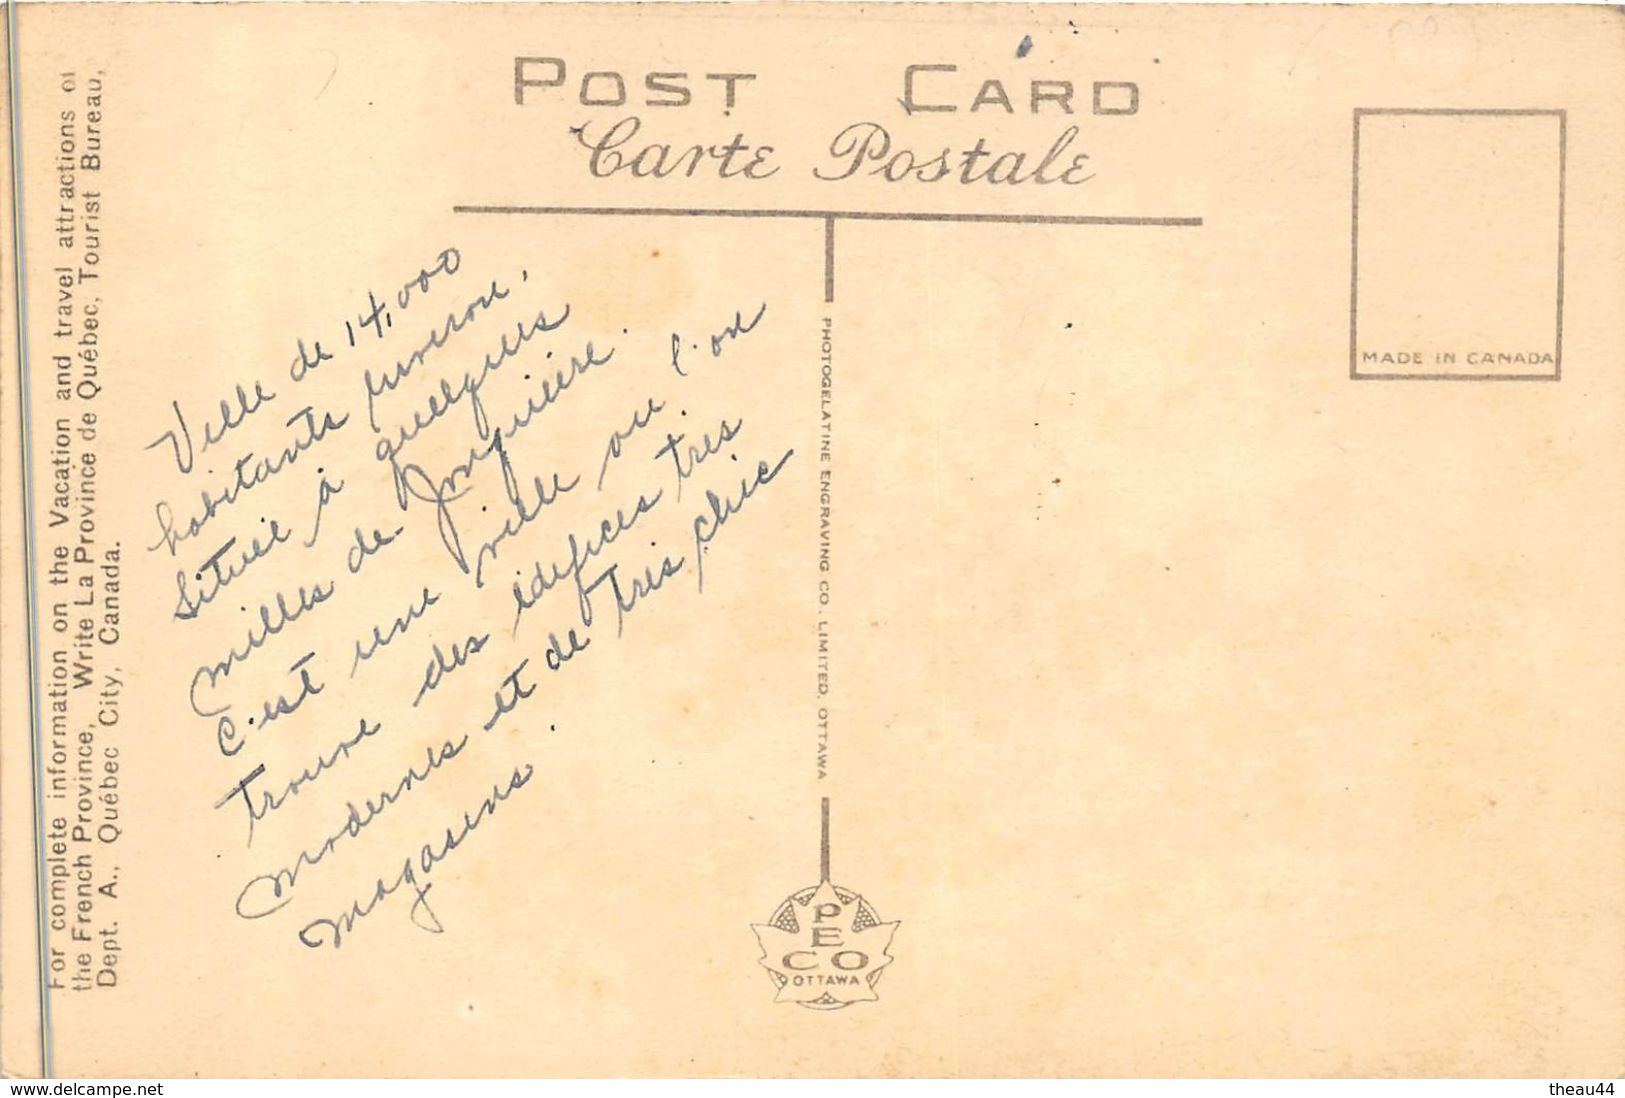 POST CARD
Carte Postale
For complete information on the Vacation and travel attractions of
the French Province, Write La Province de Québec, Tourist Bureau,
Dept. A., Québec City, Canada.
Ville de 14,000
habitants
Situeé à quelques
milles de Jonquière.
C'est une ville ou l'on
trouve des édifices très
modernes et de très chic
magasins.
PHOTOGELATINE ENGRAVING CO. LIMITED, OTTAWA
PECO
OTTAWA
MADE IN CANADA
www.delcampe.net
theau44